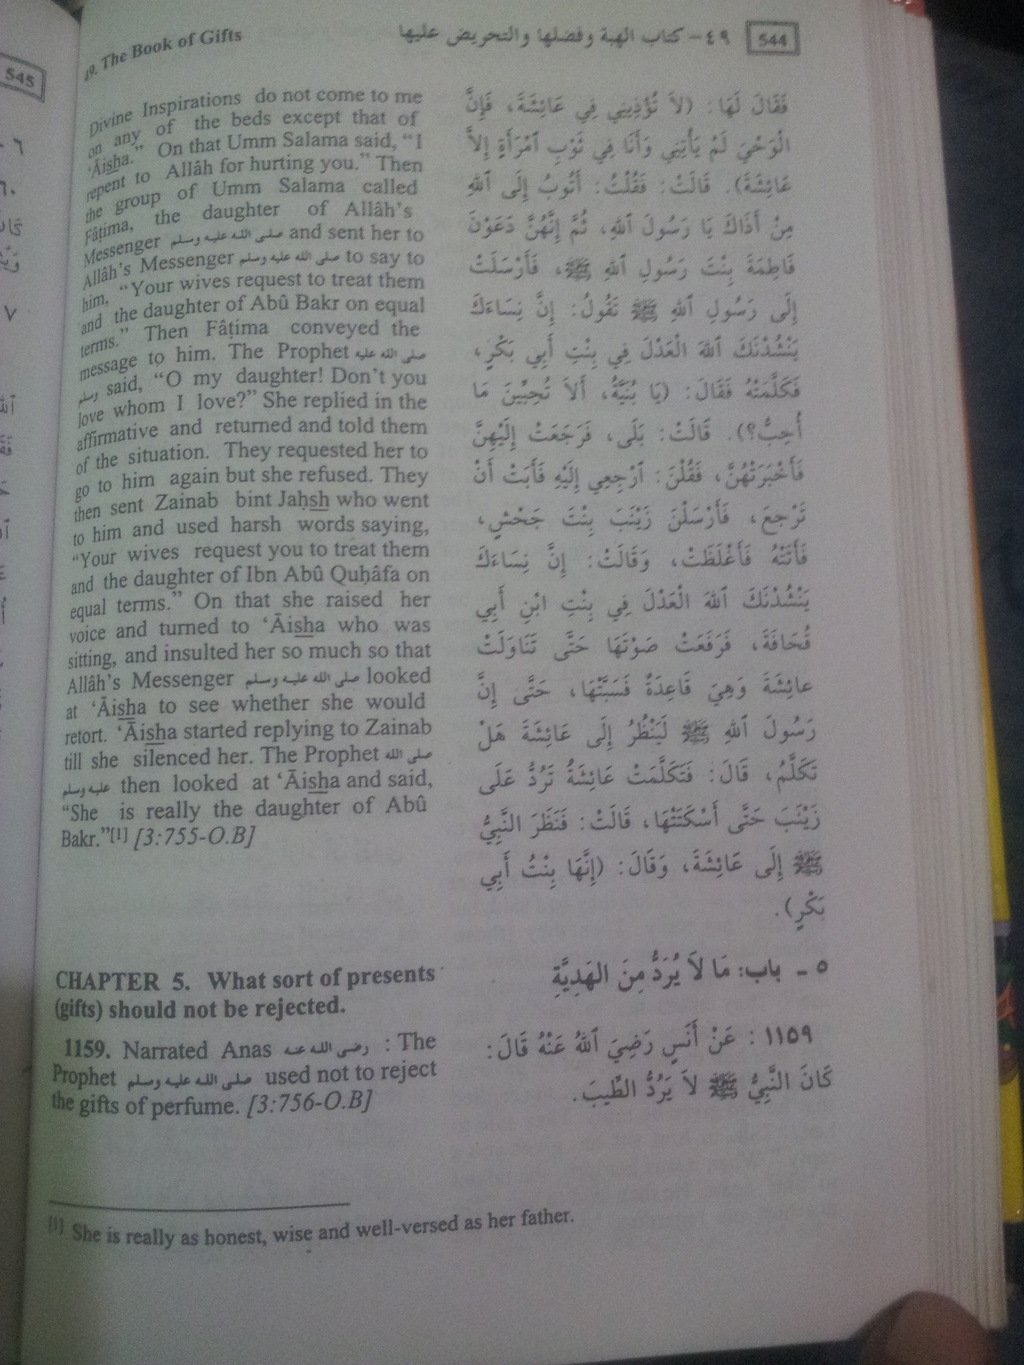 49. The Book of Gifts
٤٩- كتاب الهبة وفضلها والتحريض عليها
544
545
Divine Inspirations do not come to me
on any of the beds except that of
‘Āisha.” On that Umm Salama said, “I
repent to Allâh for hurting you.” Then
the group of Umm Salama called
Fâṭima, the daughter of Allâh’s
Messenger صلى الله عليه وسلم and sent her to
Allâh’s Messenger صلى الله عليه وسلم to say to
him, “Your wives request to treat them
and the daughter of Abû Bakr on equal
terms.” Then Fâṭima conveyed the
message to him. The Prophet صلى الله عليه
وسلم said, “O my daughter! Don’t you
love whom I love?” She replied in the
affirmative and returned and told them
of the situation. They requested her to
go to him again but she refused. They
then sent Zainab bint Jaḥsh who went
to him and used harsh words saying,
“Your wives request you to treat them
and the daughter of Ibn Abû Quḥâfa on
equal terms.” On that she raised her
voice and turned to ‘Āisha who was
sitting, and insulted her so much so that
Allâh’s Messenger صلى الله عليه وسلم looked
at ‘Āisha to see whether she would
retort. ‘Āisha started replying to Zainab
till she silenced her. The Prophet صلى الله
عليه وسلم then looked at ‘Āisha and said,
“She is really the daughter of Abû
Bakr.”[1] [3:755-O.B]
فَقَالَ لَهَا: (لاَ تُؤْذِينِي فِي عَائِشَةَ، فَإِنَّ
الْوَحْيَ لَمْ يَأْتِنِي وَأَنَا فِي ثَوْبِ ٱمْرَأَةٍ إِلاَّ
عَائِشَةَ). قَالَتْ: فَقُلْتُ: أَتُوبُ إِلَى ٱللهِ
مِنْ أَذَاكَ يَا رَسُولَ ٱللهِ، ثُمَّ إِنَّهُنَّ دَعَوْنَ
فَاطِمَةَ بِنْتَ رَسُولِ ٱللهِ ﷺ، فَأَرْسَلَتْ
إِلَى رَسُولِ ٱللهِ ﷺ تَقُولُ: إِنَّ نِسَاءَكَ
يَنْشُدْنَكَ ٱللهَ الْعَدْلَ فِي بِنْتِ أَبِي بَكْرٍ،
فَكَلَّمَتْهُ فَقَالَ: (يَا بُنَيَّةُ، أَلاَ تُحِبِّينَ مَا
أُحِبُّ؟). قَالَتْ: بَلَى، فَرَجَعَتْ إِلَيْهِنَّ
فَأَخْبَرَتْهُنَّ، فَقُلْنَ: ٱرْجِعِي إِلَيْهِ فَأَبَتْ أَنْ
تَرْجِعَ، فَأَرْسَلْنَ زَيْنَبَ بِنْتَ جَحْشٍ،
فَأَتَتْهُ فَأَغْلَظَتْ، وَقَالَتْ: إِنَّ نِسَاءَكَ
يَنْشُدْنَكَ ٱللهَ الْعَدْلَ فِي بِنْتِ ابْنِ أَبِي
قُحَافَةَ، فَرَفَعَتْ صَوْتَهَا حَتَّى تَنَاوَلَتْ
عائِشَةَ وَهِيَ قَاعِدَةٌ فَسَبَّتْهَا، حَتَّى إِنَّ
رَسُولَ ٱللهِ ﷺ لَيَنْظُرُ إِلَى عَائِشَةَ هَلْ
تَكَلَّمُ، قَالَ: فَتَكَلَّمَتْ عَائِشَةُ تَرُدُّ عَلَى
زَيْنَبَ حَتَّى أَسْكَتَتْهَا، قَالَتْ: فَنَظَرَ النَّبِيُّ
ﷺ إِلَى عَائِشَةَ، وَقَالَ: (إِنَّهَا بِنْتُ أَبِي
بَكْرٍ).
CHAPTER 5. What sort of presents
(gifts) should not be rejected.
٥ - باب: مَا لاَ يُرَدُّ مِنَ الهَدِيَّةِ
1159. Narrated Anas رضى الله عنه : The
Prophet صلى الله عليه وسلم used not to reject
the gifts of perfume. [3:756-O.B]
١١٥٩ : عَنْ أَنَسٍ رَضِيَ ٱللهُ عَنْهُ قَالَ:
كَانَ النَّبِيُّ ﷺ لاَ يَرُدُّ الطِّيبَ.
[1] She is really as honest, wise and well-versed as her father.